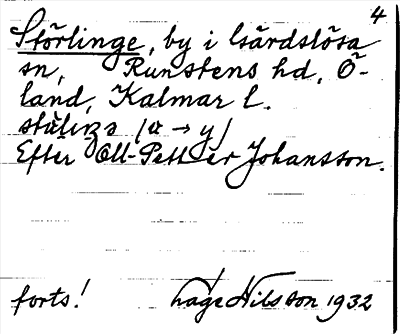 4
Störlinge, by i Gärdslösa
sn, Runstens hd, Ö-
land, Kalmar l.
Efter Oll-Petter Johansson.
forts! Tage Nilsson 1932